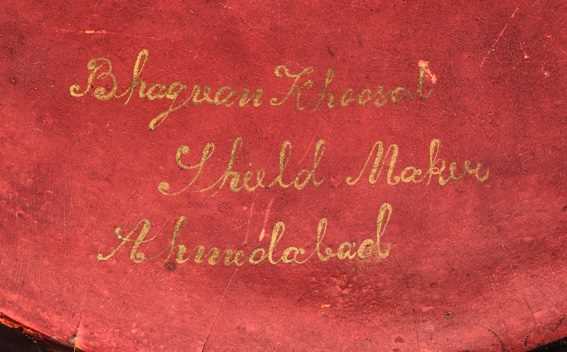 Bhagvan Khoosal
Shield Maker
Ahmedabad